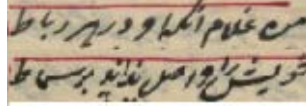 من غلام آنکه او در هر رباط
خویش را واصل نداند بر سماط